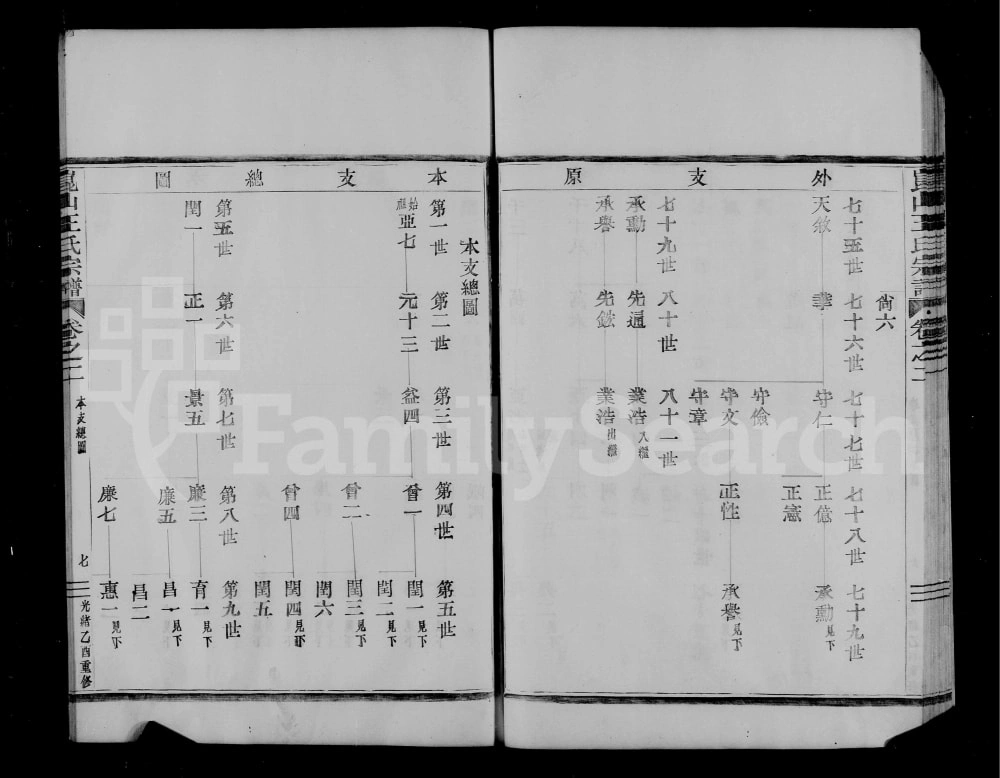 外支原
尙六
七十五世 七十六世 七十七世 七十八世 七十九世
天敘 華 守仁 正億 承勳見下
正憲
守儉
守文 正性 承譽見下
守章
七十九世 八十世 八十一世
承勳 先通 業浩入繼
承譽 先鉉 業浩出繼
本支總圖
本支總圖
第一世 第二世 第三世 第四世 第五世
始祖亞七 元十三 益四 曾一 閏一見下
閏二見下
曾二 閏三見下
閏六
曾四 閏四見下
閏五
第五世 第六世 第七世 第八世 第九世
閏一 正一 景五 廉三 育一見下
廉五 昌一見下
昌二
廉七 惠一見下
崑山王氏宗譜 卷之二 本支總圖 七 光緒乙酉重修
崑山王氏宗譜 卷之二
FamilySearch